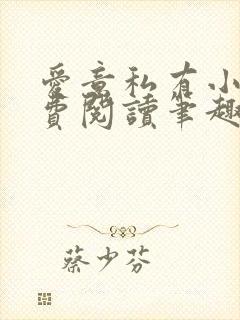 愛意私有小
費閱讀筆趣
蔡少芬